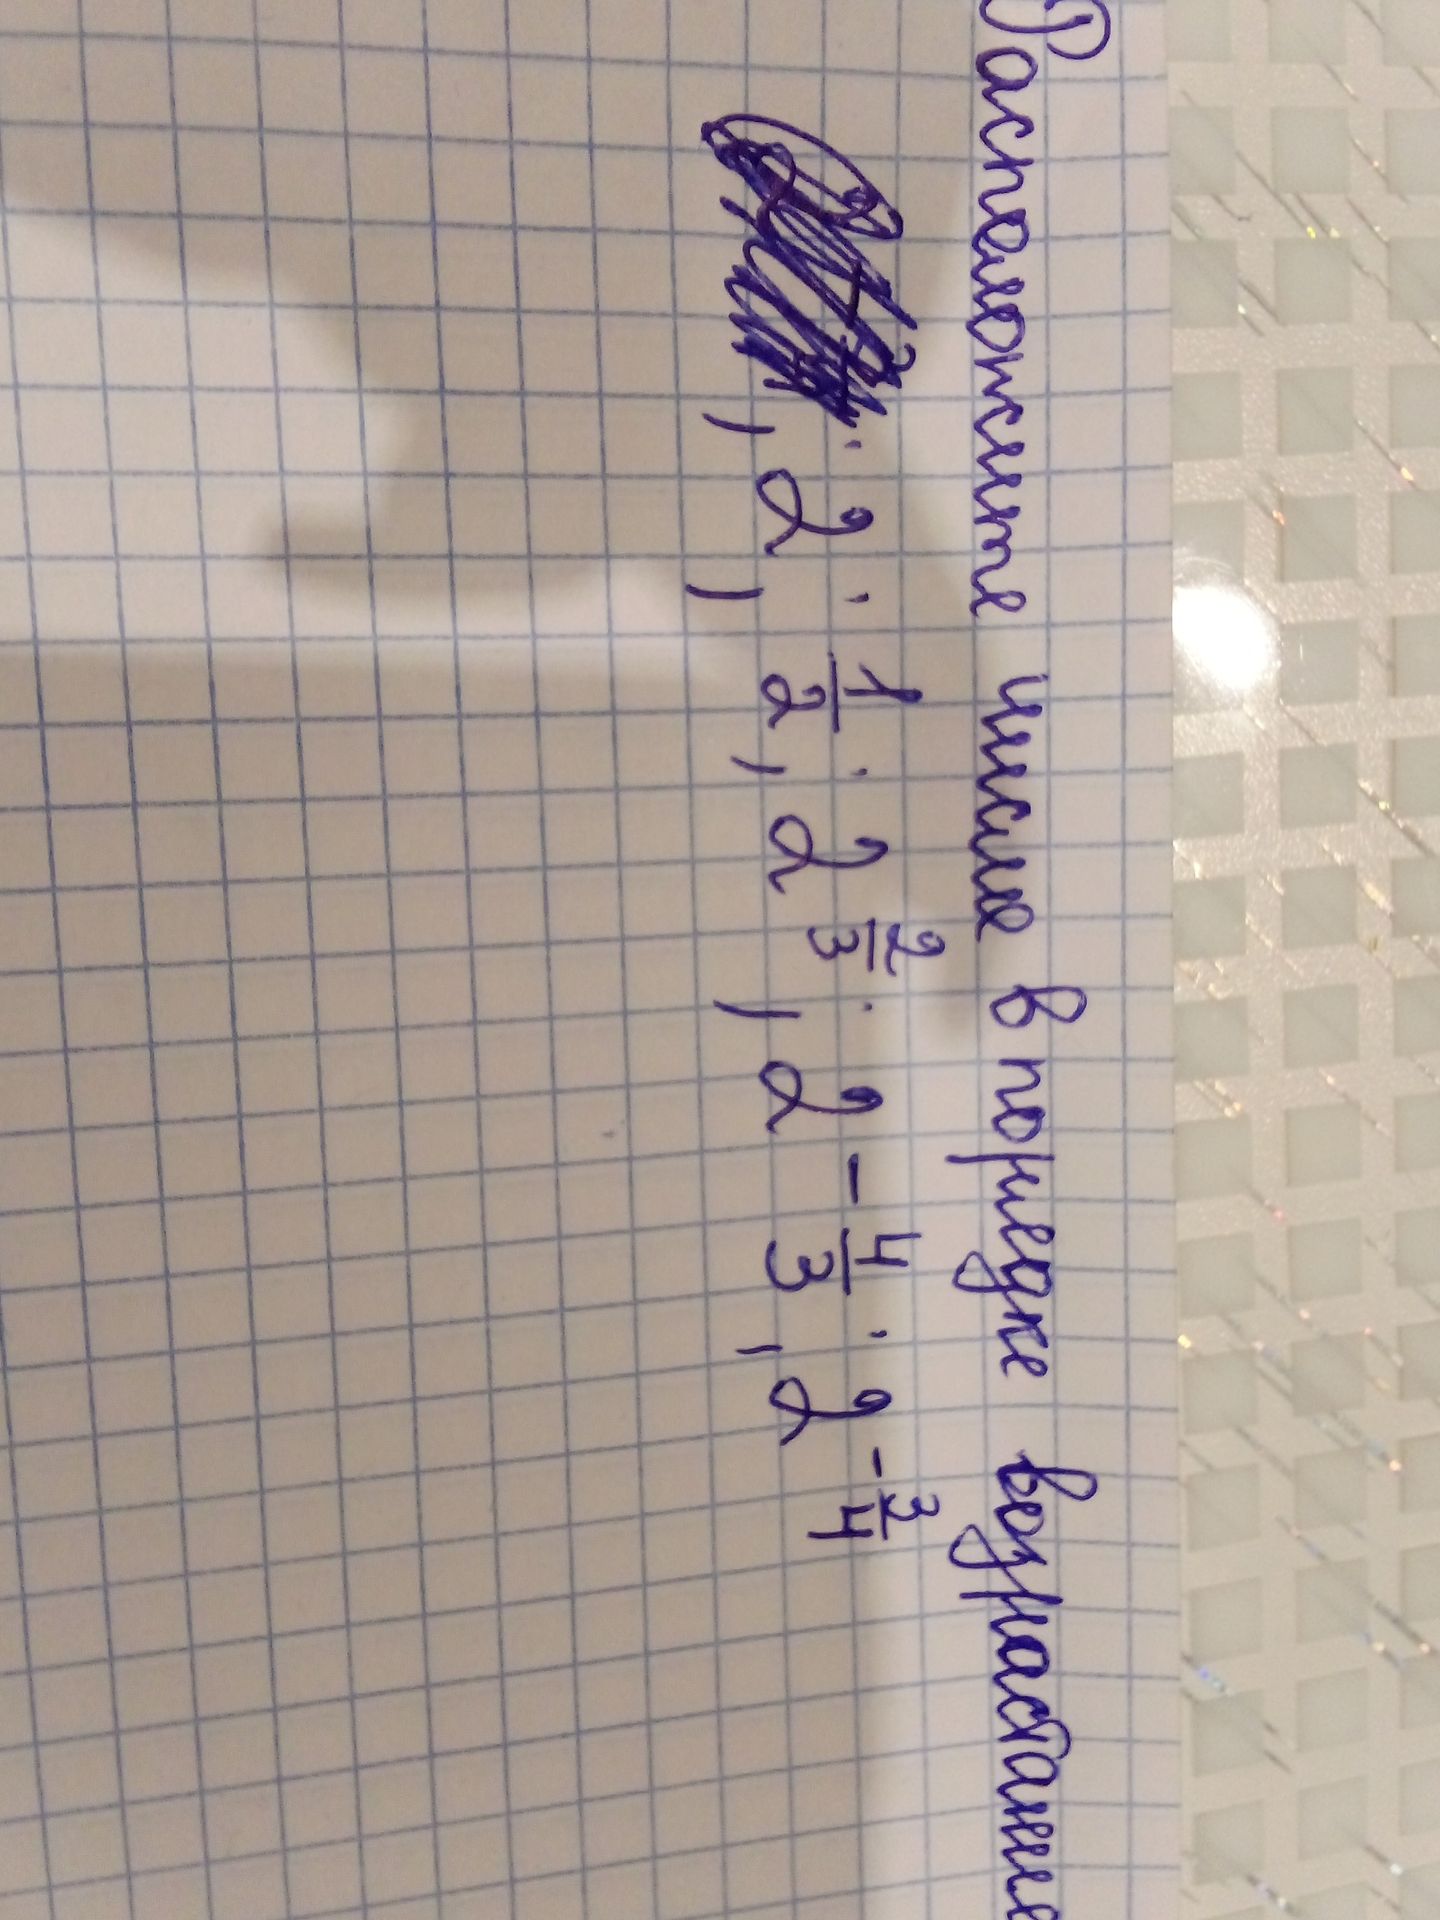 Расположите числа в порядке возрастание
; 2; 1/2; 2^(2/3); 2^(-4/3); 2^(-3/4)